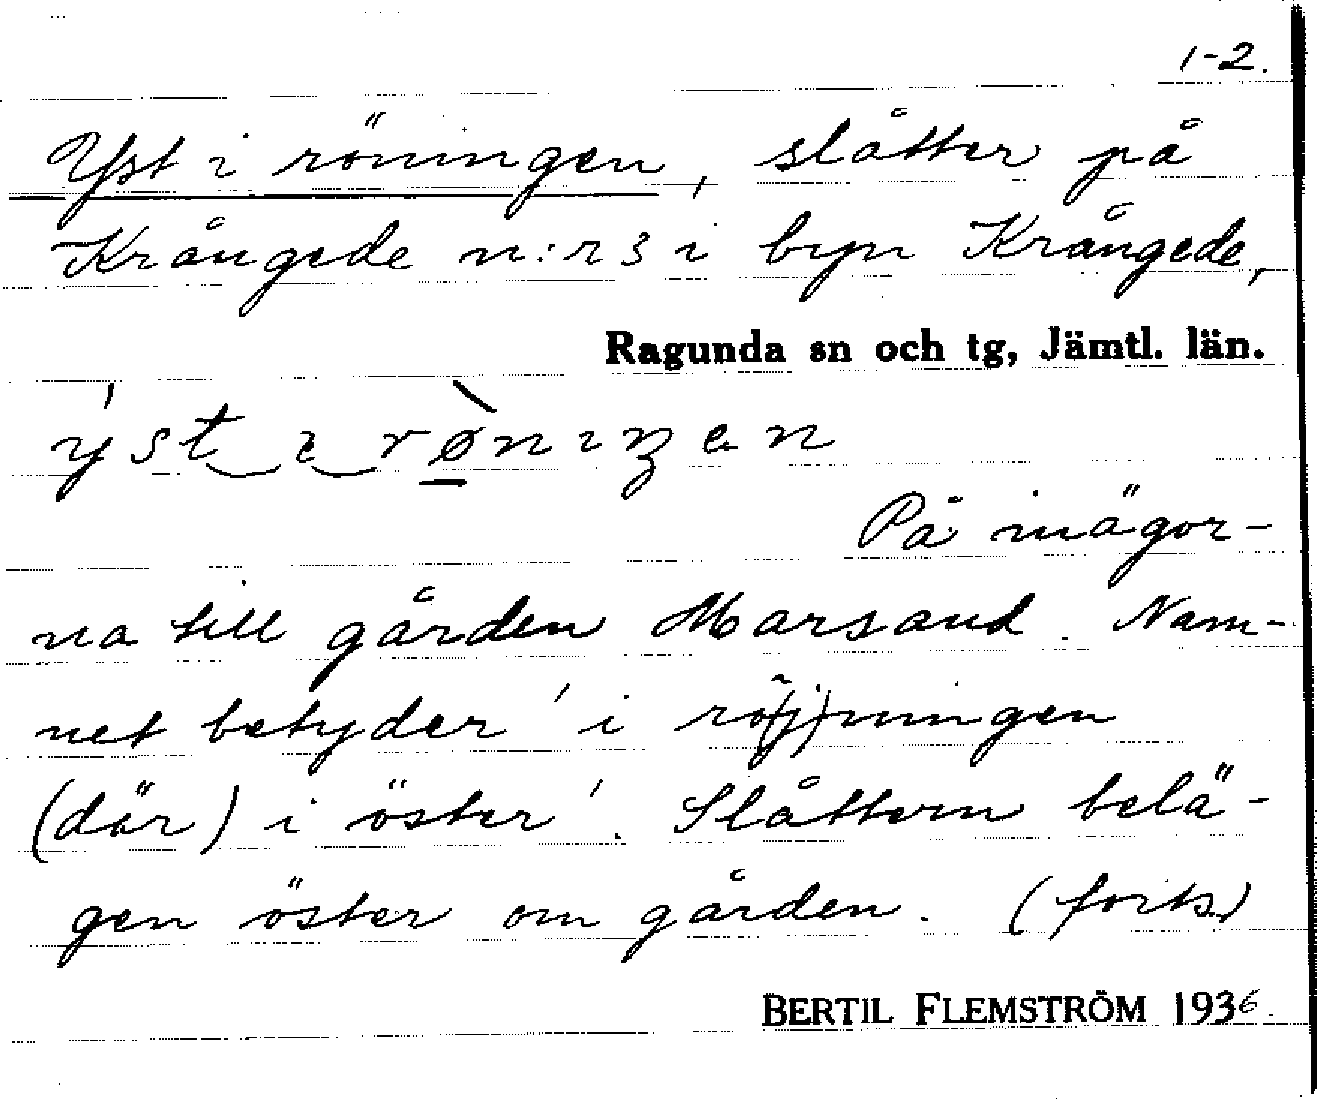 1-2.
Yst i röningen, slåtter på
Krångede n:r 3 i byn Krångede,
Ragunda sn och tg, Jämtl. län.
På inägor-
na till gården Marsand. Nam-
net betyder 'i rö(j)ningen
(där) i öster'. Slåttern belä-
gen öster om gården. (forts)
BERTIL FLEMSTRÖM 1936.